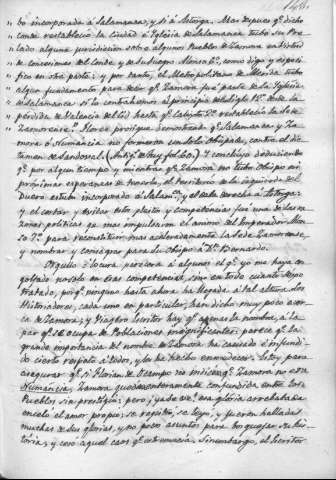 bo incorporada á Salamanca, y si á Astorga. Mas despues q.e dicho
conde restableció la ciudad é Iglesia de Salamanca tubo su Pre-
lado alguna jurisdiccion sobre algunos Pueblos de Zamora en virtud
de concesiones del Conde, y de su Suegro Alonso 6.º, como digo y especi-
fico en otra parte; y por tanto, el Metropolitano de Mérida tubo
algun fundamento para decir q.e Zamora fué parte de la Iglesia
de Salamanca si lo contrahemos al principio del siglo 12.º desde la
pérdida de Valencia del Cid hasta q.e Calixto 2.º restableció la Sede
Zamorense. Florez prosigue demostrando q.e Salamanca y Za-
mora ó Numancia no formaron un solo Obispado, contra el dic-
tamen de Sandoval. Y concluye deduciendo
q.e por algun tiempo y mientras q.e Zamora no tubo Obispo ni
próximas esperanzas de tenerlo, el territorio de la izquierda del
Duero estubo incorporado á Salam.ca y el de la derecha á Astorga:
y el cortar y evitar este pleito y competencias fué una de las ra-
zones politicas q.e mas impulsaron el animo del Emperador Alon-
so 7.º para reconstituir mas aceleradamente la Sede Zamorense,
y nombrar y consignar para su Obispo á D.n Bernardo.
Orgullo ó locura parecerá á algunos el q.e yo me haya en-
golfado no solo en esas competencias, sino en todo cuanto llevo
tratado, por q.e ninguno hasta ahora ha llegado á tal altura. Los
Historiadores, cada uno en particular, han dicho muy poco acer-
ca de Zamora; y Viagero Escritor hay q.e apenas la nombra, á la
par q.e se ocupa de Poblaciones insignificantes: parece q.e la
grande importancia del nombre de Zamora ha causado é infundi-
do cierto respeto á todos, y los ha hecho enmudecer. Estoy para
asegurar q.e si Florian de Ocampo no indica q.e Zamora no es
Numancia, Zamora quedaria enteramente confundida entre los
Pueblos sin prestigio; pero, ya de ver esa gloria arrebatada
enceló el amor propio; se registró, se leyó, y fueron halladas
muchas de sus glorias, y no pocos asuntos para bosquejar su His-
toria; y cesó aquel caos q.e